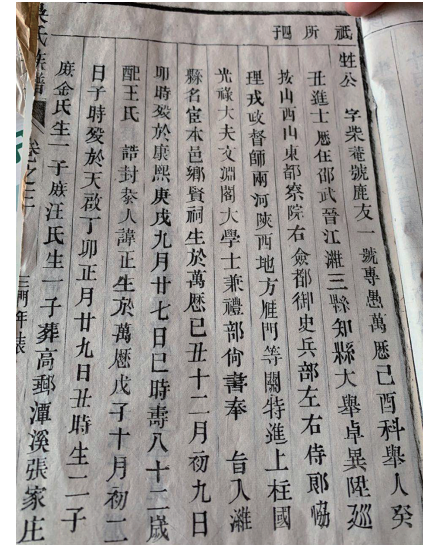 祇所刊
甡公 字柴菴號鹿友一號專愚萬歷己酉科舉人癸
丑進士歷任邵武晉江濰三縣知縣大舉卓異陞廵
按山西山東都察院右僉都御史兵部左右侍郎協
理戎政督師兩河陝西地方雁門等關特進上柱國
光祿大夫文淵閣大學士兼禮部尙書奉 旨入濰
縣名宦本邑鄉賢祠生於萬歷己丑十二月初九日
卯時歿於康熙庚戌九月廿七日巳時壽八十二歲
配王氏 誥封人諱正生於萬歷戊子十月初二
日子時歿於天啟丁卯正月廿九日丑時生二子
庶金氏生一子庶汪氏生一子葬高郵潭溪張家庄
吳氏族譜 卷之二 三門年表